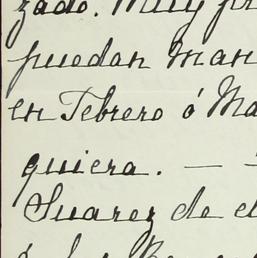 zado. Muy pr
puedan man
en Febrero ó Ma
quiera. —
Suarez de el